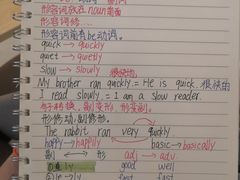 形容词放在noun前面
形容词修....
形容词前有be动词。
quick → quickly
quiet → quietly
Slow → slowly 很快地
My brother ran quickly = He is quick.
I read slowly = I am a Slow reader.
句子转换，副变形，形变副。
形修动.副修形.
The rabbit ran very quickly
happy → happily basic → basically
副 ⇔ 形 adj → adv
good well
ly fast fast